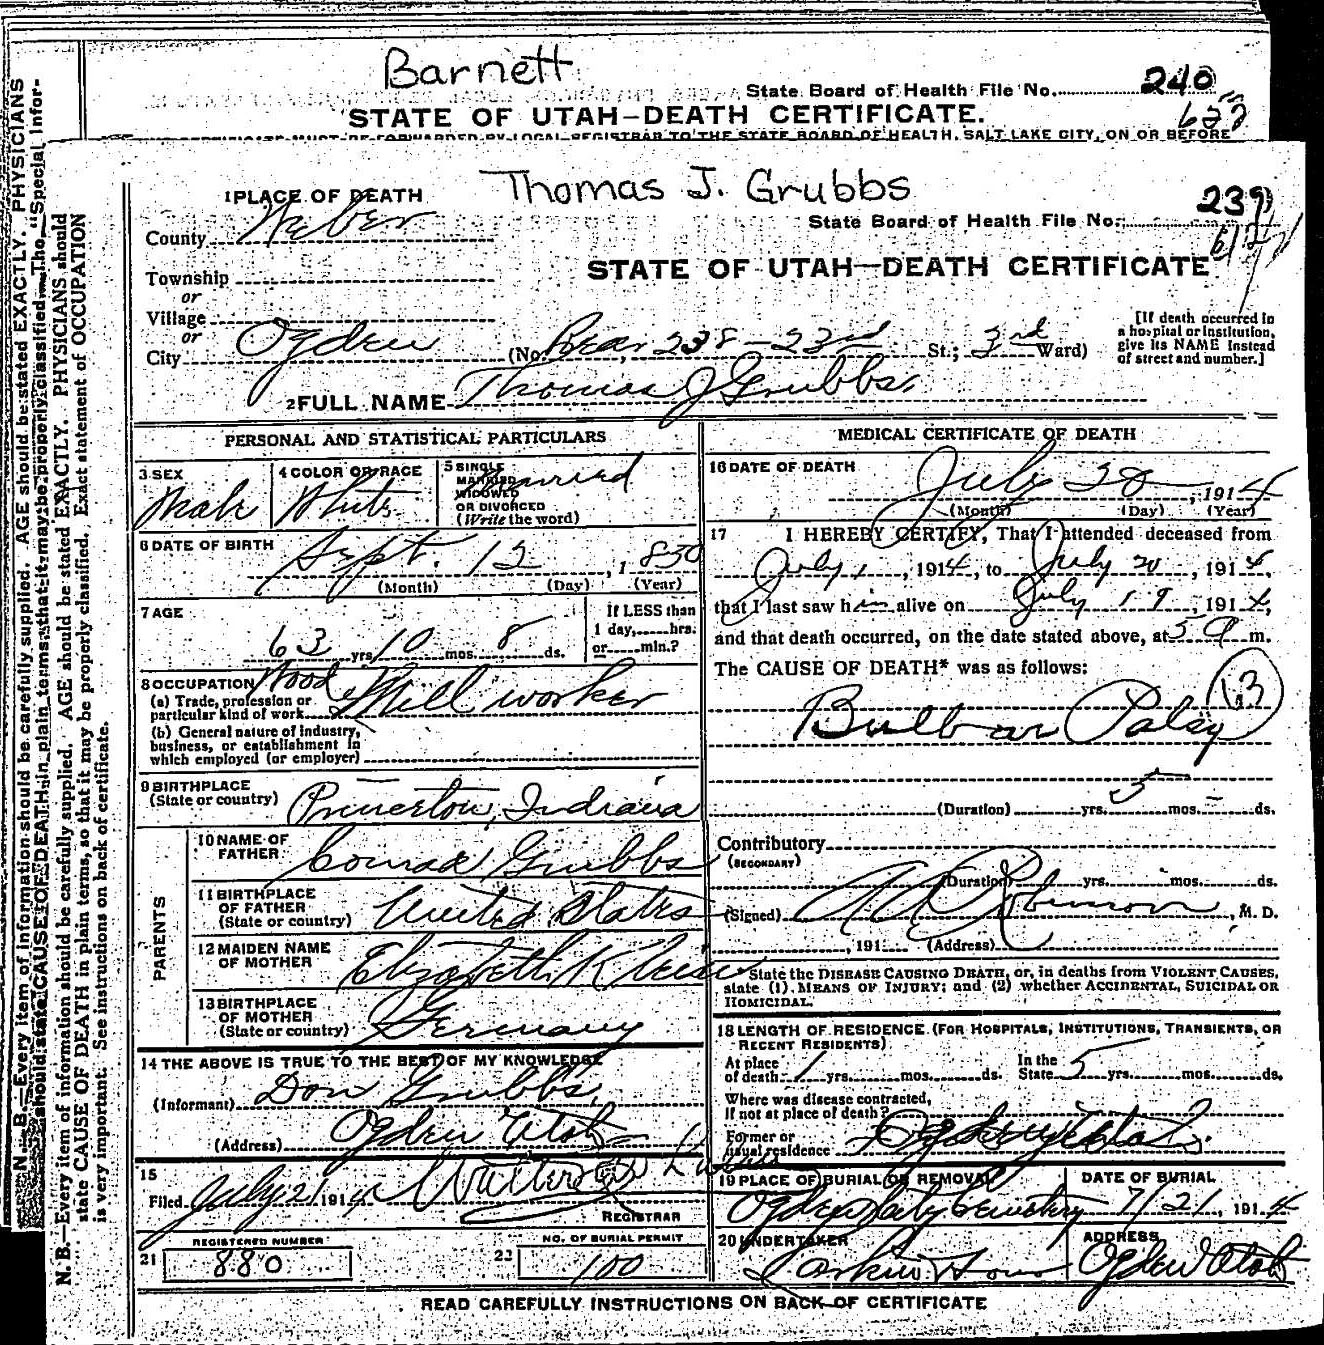 Barnett
State Board of Health File No. 240
STATE OF UTAH—DEATH CERTIFICATE.
CERTIFICATE MUST BE FORWARDED BY LOCAL REGISTRAR TO THE STATE BOARD OF HEALTH, SALT LAKE CITY, ON OR BEFORE
Thomas J. Grubbs
State Board of Health File No. 239
STATE OF UTAH—DEATH CERTIFICATE
1 PLACE OF DEATH
County Weber
Township
or
Village
or
City Ogden (No. Rear 238 - 23rd St.; 3rd Ward)
[If death occurred in a hospital or institution, give its NAME instead of street and number.]
2 FULL NAME Thomas J Grubbs
PERSONAL AND STATISTICAL PARTICULARS
3 SEX Male
4 COLOR OR RACE White
5 SINGLE MARRIED WIDOWED OR DIVORCED (Write the word) Married
6 DATE OF BIRTH Sept. 12, 1830
(Month) (Day) (Year)
7 AGE
63 yrs. 10 mos. 8 ds.
If LESS than 1 day,......hrs. or......min.?
8 OCCUPATION
(a) Trade, profession or particular kind of work Wood Mill worker
(b) General nature of industry, business, or establishment in which employed (or employer)
9 BIRTHPLACE (State or country) Princeton, Indiana
PARENTS
10 NAME OF FATHER Conrad Grubbs
11 BIRTHPLACE OF FATHER (State or country) United States
12 MAIDEN NAME OF MOTHER Elizabeth
13 BIRTHPLACE OF MOTHER (State or country) Germany
14 THE ABOVE IS TRUE TO THE BEST OF MY KNOWLEDGE
(Informant) Don Grubbs
(Address) Ogden Utah
15
Filed July 21 1914 Walter
REGISTRAR
21 REGISTERED NUMBER 880
22 NO. OF BURIAL PERMIT 100
MEDICAL CERTIFICATE OF DEATH
16 DATE OF DEATH
July 20, 1914
(Month) (Day) (Year)
17 I HEREBY CERTIFY, That I attended deceased from
July 1, 1914, to July 20, 1914,
that I last saw him alive on July 19, 1914,
and that death occurred, on the date stated above, at 5 a m.
The CAUSE OF DEATH* was as follows:
63
Bulbar Palsy
(Duration) yrs. 5 mos. - ds.
Contributory
(SECONDARY)
(Duration) yrs. mos. ds.
(Signed) Robinson, M. D.
, 191 (Address)
State the DISEASE CAUSING DEATH, or, in deaths from VIOLENT CAUSES, state (1) MEANS OF INJURY; and (2) whether ACCIDENTAL, SUICIDAL OR HOMICIDAL.
18 LENGTH OF RESIDENCE (FOR HOSPITALS, INSTITUTIONS, TRANSIENTS, OR RECENT RESIDENTS)
At place of death 1 yrs. mos. ds. In the State 5 yrs. mos. ds.
Where was disease contracted, if not at place of death?
Former or usual residence Ogden Utah
19 PLACE OF BURIAL OR REMOVAL
Ogden City Cemetery
DATE OF BURIAL
7/21, 1914
20 UNDERTAKER
Larkin
ADDRESS
Ogden Utah
READ CAREFULLY INSTRUCTIONS ON BACK OF CERTIFICATE
N. B.—Every item of information should be carefully supplied. AGE should be stated EXACTLY. PHYSICIANS should
state CAUSE OF DEATH in plain terms, so that it may be properly classified. Exact statement of OCCUPATION
is very important. See instructions on back of certificate.
N. B.—Every item of information should be carefully supplied. AGE should be stated EXACTLY. PHYSICIANS
should state CAUSE OF DEATH in plain terms that it may be properly classified. The "Special Infor-